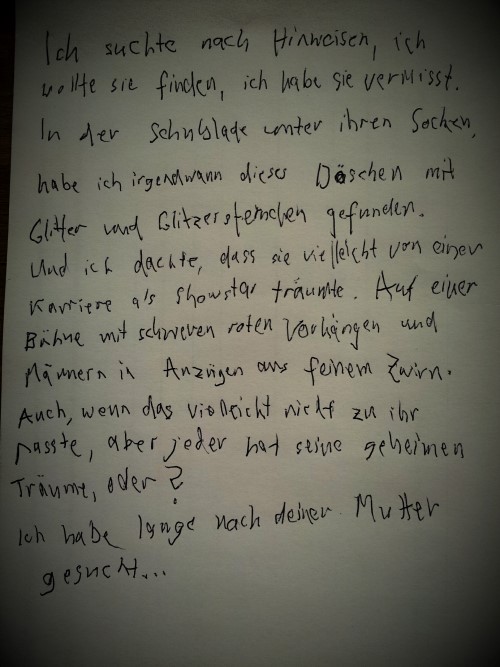 Ich suchte nach Hinweisen, ich
wollte sie finden, ich habe sie vermisst.
In der Schublade unter ihren Socken,
habe ich irgendwann dieses Döschen mit
Glitter und Glitzersternchen gefunden.
Und ich dachte, dass sie vielleicht von einer
Karriere als Showstar träumte. Auf einer
Bühne mit schweren roten Vorhängen und
Männern in Anzügen aus feinem Zwirn.
Auch, wenn das vielleicht nicht zu ihr
passte, aber jeder hat seine geheimen
Träume, oder?
Ich habe lange nach deiner Mutter
gesucht...